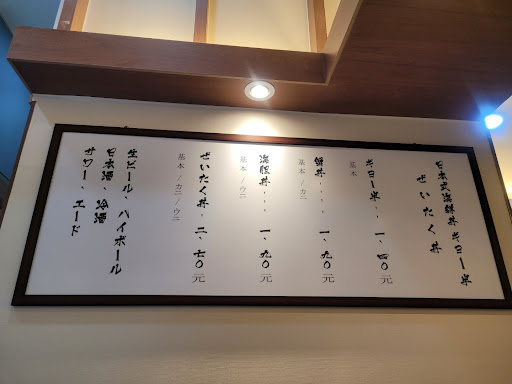 日本式海鮮丼 キヨー丼
ぜいたく丼
キヨー丼・・・一、四〇元
基本
蟹丼・・・・一、九〇元
基本/カニ
海胆丼・・・一、九〇元
基本/ウニ
ぜいたく丼・二、七〇元
基本/カニ/ウニ
生ビール、ハイボール
日本酒、冷酒
サワー、エード